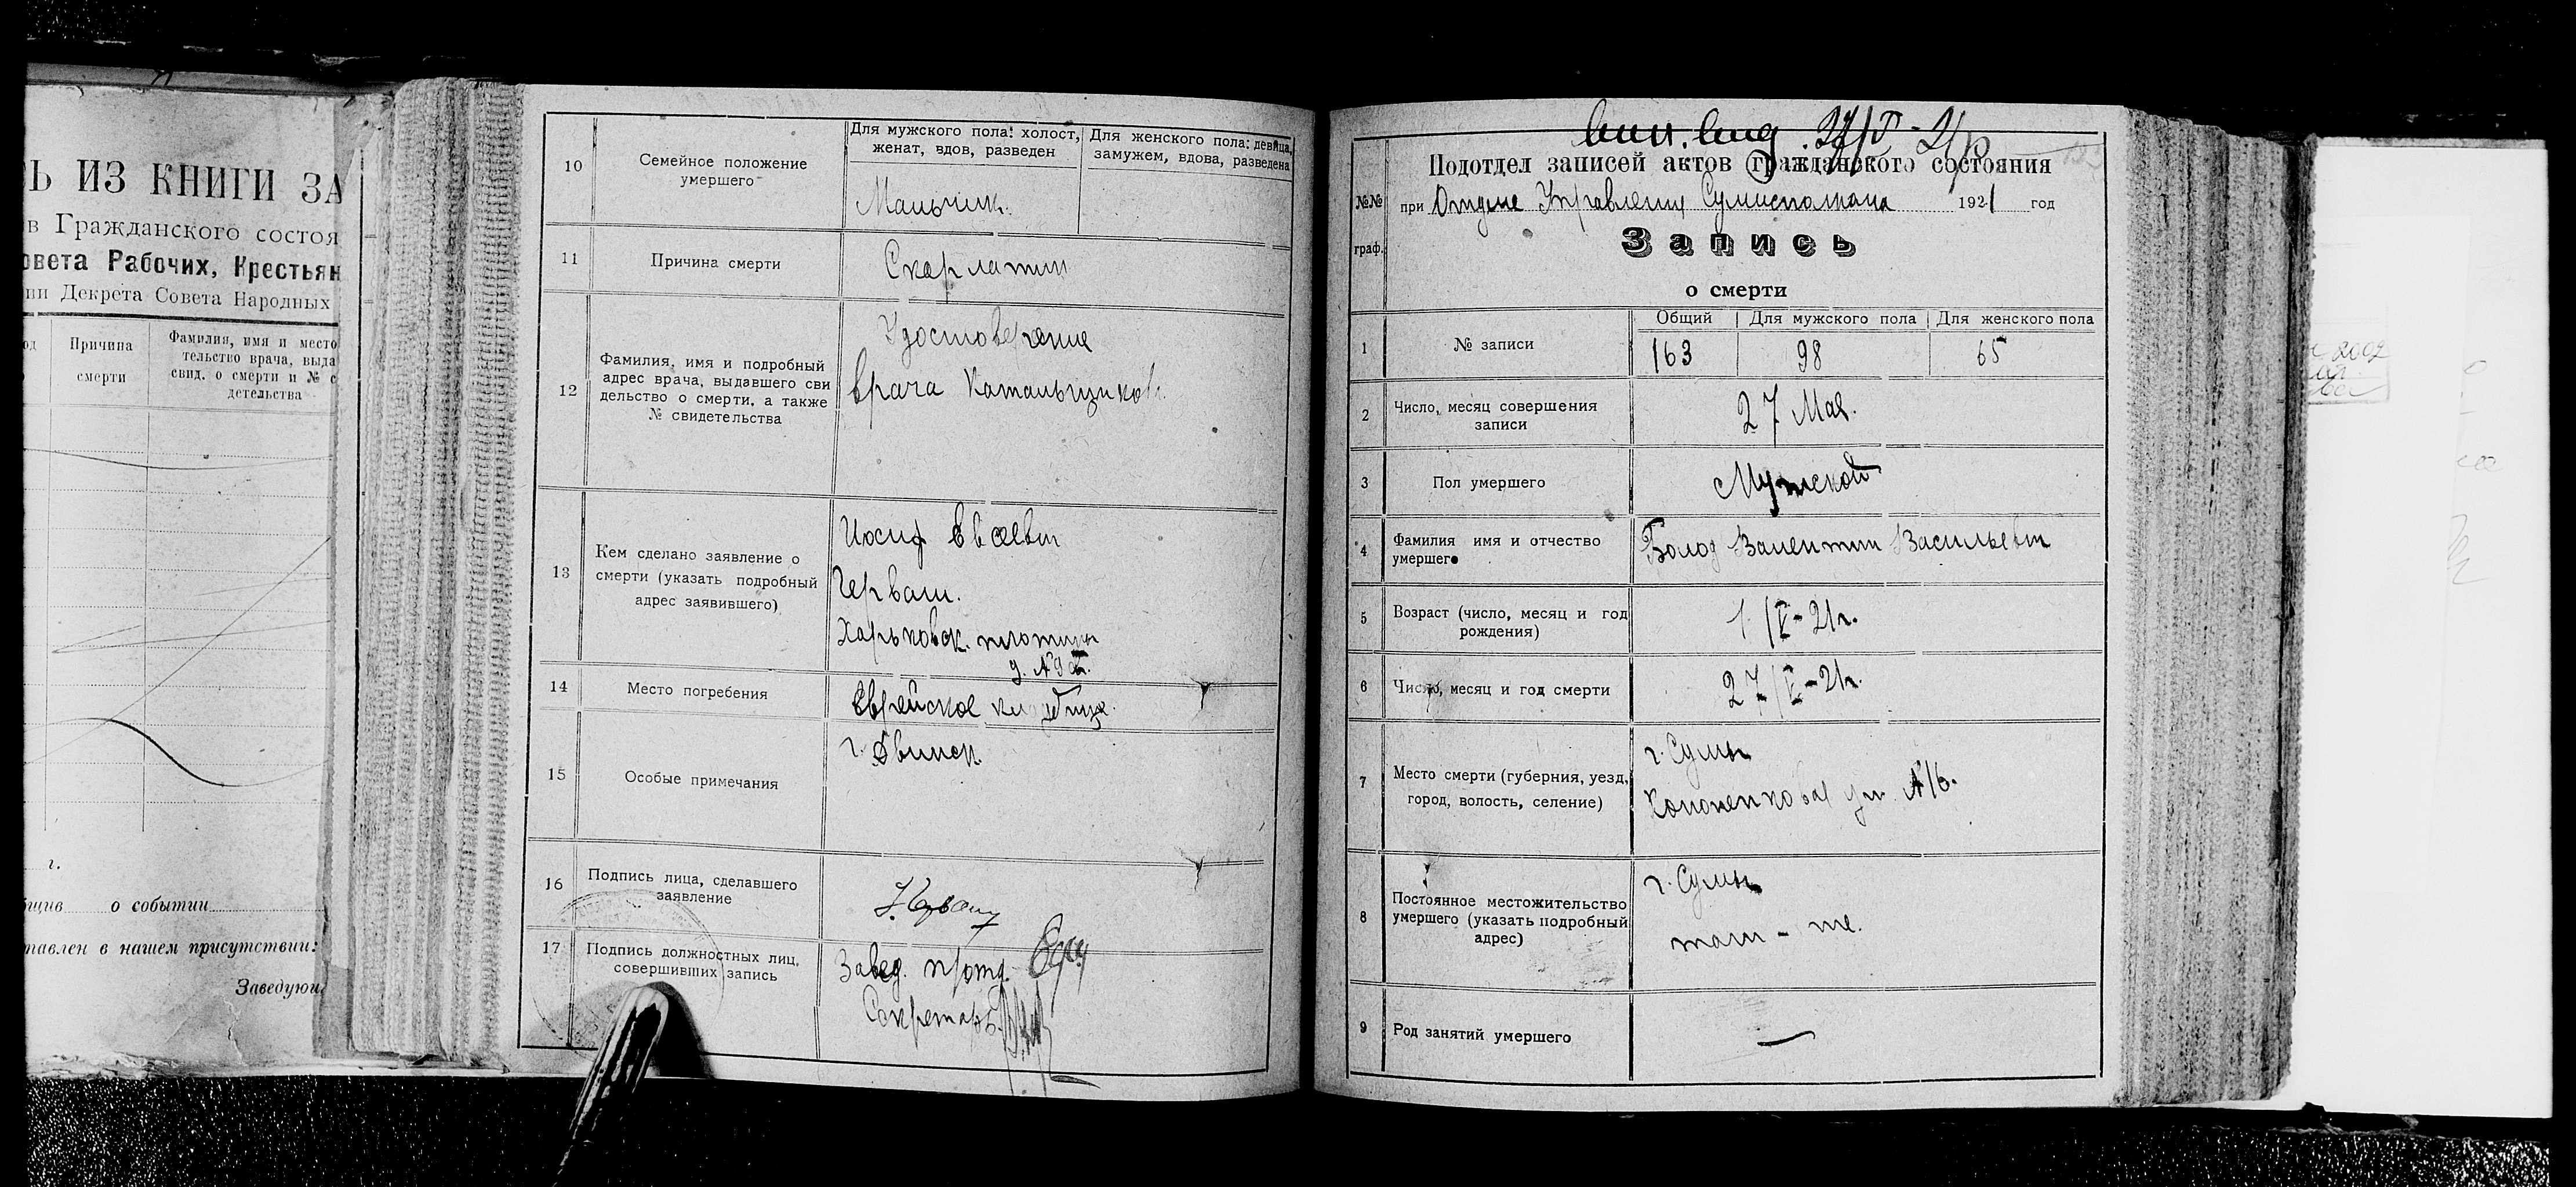 Ь ИЗ КНИГИ ЗА
в Гражданского состоя
овета Рабочих, Крестьян
ии Декрета Совета Народных
од
Причина
смерти
Фамилия, имя и место
тельство врача, выда
свид. о смерти и № с
детельства
г.
бщив о событии
тавлен в нашем присутствии:
Заведующ
10
Семейное положение
умершего
Для мужского пола: холост,
женат, вдов, разведен
Для женского пола: девица,
замужем, вдова, разведена
Мальчик.
11
Причина смерти
Скарлатин
12
Фамилия, имя и подробный
адрес врача, выдавшего сви
дельство о смерти, а также
№ свидетельства
Удостоверение
врача Катальщиков
13
Кем сделано заявление о
смерти (указать подробный
адрес заявившего)
Иосиф Евсевич
Черваш.
Харьковск. плотина
д. №
14
Место погребения
Еврейское кладбище.
15
Особые примечания
г. Двинск.
16
Подпись лица, сделавшего
заявление
17
Подпись должностных лиц,
совершивших запись
Завед. п/отд.
Секретарь
Подотдел записей актов гражданского состояния
№№
граф.
при Отделе Управления Сумисполкома 1921 год
Запись
о смерти
1
№ записи
Общий
Для мужского пола
Для женского пола
163
98
65
2
Число, месяц совершения
записи
27 Мая.
3
Пол умершего
Мужской
4
Фамилия имя и отчество
умершего
Болод Валентин Васильевич
5
Возраст (число, месяц и год
рождения)
1/V-21г.
6
Число, месяц и год смерти
27/V-21г.
7
Место смерти (губерния, уезд,
город, волость, селение)
г. Сумы
ул. №16.
8
Постоянное местожительство
умершего (указать подробный
адрес)
г. Сумы
там-же.
9
Род занятий умершего
—
2002